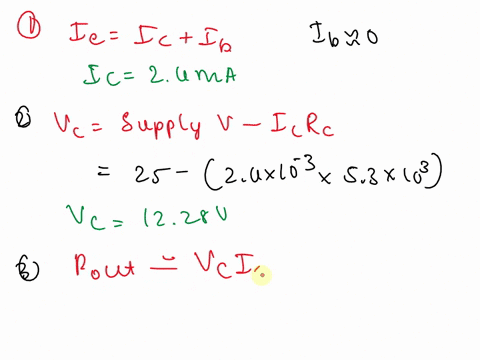 ① Ie = Ic + Ib    Ib ≈ 0
Ic = 2.4mA
② Vc = Supply V - IcRc
= 25 - (2.4x10^-3 x 5.3x10^3)
Vc = 12.28V
③ Pout = VcI